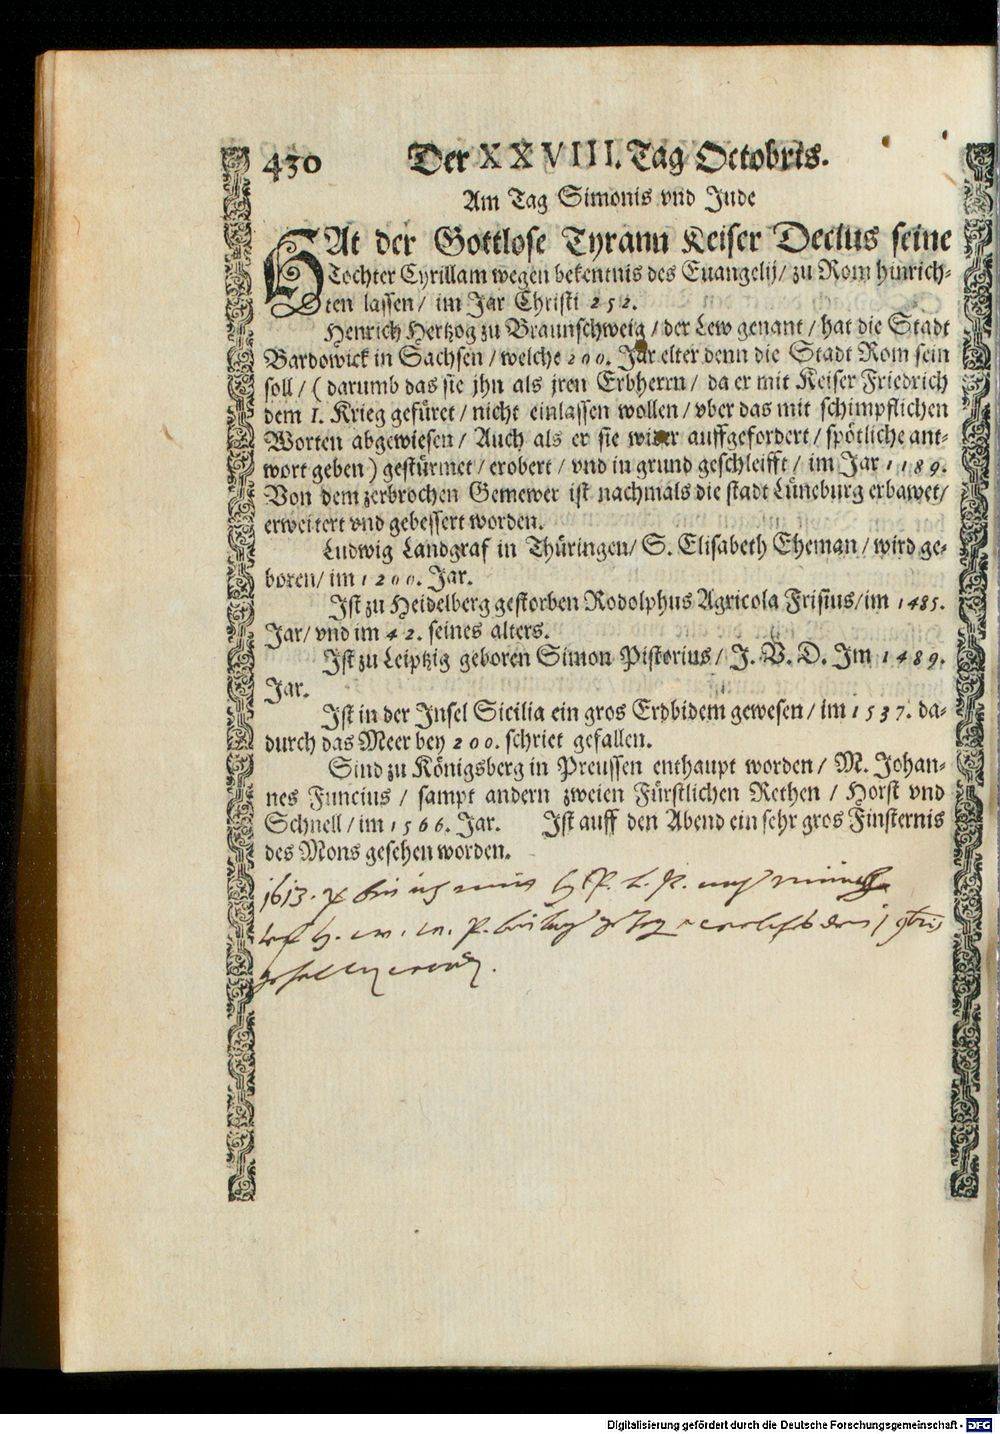 430 Der XXVIII. Tag Octobris.
Am Tag Simonis vnd Jude
HAt der Gottlose Tyrann Keiser Decius seine
Tochter Cyrillam wegen bekentnis des Euangelij/ zu Rom hinrich-
ten lassen/ im Jar Christi 252.
Henrich Hertzog zu Braunschweig/ der Lew genant/ hat die Stadt
Bardowick in Sachsen/ welche 200. Jar elter denn die Stadt Rom sein
soll/ (darumb das sie jhn als jren Erbherrn/ da er mit Keiser Friedrich
dem I. Krieg gefüret/ nicht einlassen wollen/ vber das mit schimpflichen
Worten abgewiesen/ Auch als er sie wider auffgefordert/ spötliche ant-
wort geben) gestürmet/ erobert/ vnd in grund geschleifft/ im Jar 1189.
Von dem zerbrochen Gemewer ist nachmals die stadt Lüneburg erbawet/
erweitert vnd gebessert worden.
Ludwig Landgraf in Thüringen/ S. Elisabeth Eheman/ wird ge-
boren/ im 1200. Jar.
Ist zu Heidelberg gestorben Rodolphus Agricola Frisius/ im 1485.
Jar/ vnd im 42. seines alters.
Ist zu Leiptzig geboren Simon Pistorius/ J. V. D. Im 1489.
Jar.
Ist in der Insel Sicilia ein gros Erdbidem gewesen/ im 1537. da-
durch das Meer bey 200. schriet gefallen.
Sind zu Königsberg in Preussen enthaupt worden/ M. Johan-
nes Funcius/ sampt andern zweien Fürstlichen Rethen/ Horst vnd
Schnell/ im 1566. Jar. Ist auff den Abend ein sehr gros Finsternis
des Mons gesehen worden.
1613.
Digitalisierung gefördert durch die Deutsche Forschungsgemeinschaft - DFG